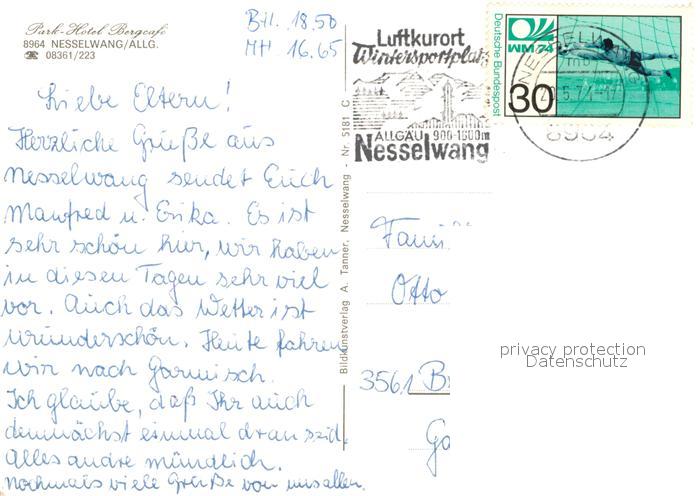 Park-Hotel Bergcafé
8964 NESSELWANG/ALLG.
☎ 08361/223
BH. 18.50
MH 16.65
Liebe Eltern!
Herzliche Grüße aus
Nesselwang sendet Euch
Manfred u. Erika. Es ist
sehr schön hier, wir haben
in diesen Tagen sehr viel
vor. Auch das Wetter ist
wunderschön. Heute fahren
wir nach Garmisch.
Ich glaube, daß Ihr auch
demnächst einmal dran seid.
Alles andre mündlich.
Nochmals viele Grüße von uns allen.
Bildkunstverlag A. Tanner, Nesselwang - Nr. 5181 C
Luftkurort
Wintersportplatz
ALLGÄU 900-1600m
Nesselwang
Deutsche Bundespost
WM 74
30
NESSELW
8964
Fami
Otto
3561 B
Ga
privacy protection
Datenschutz